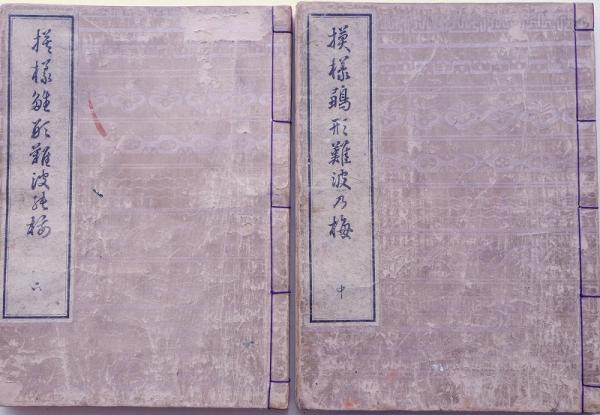 摸樣鶵形難波乃梅
中
摸樣雛形難波梅